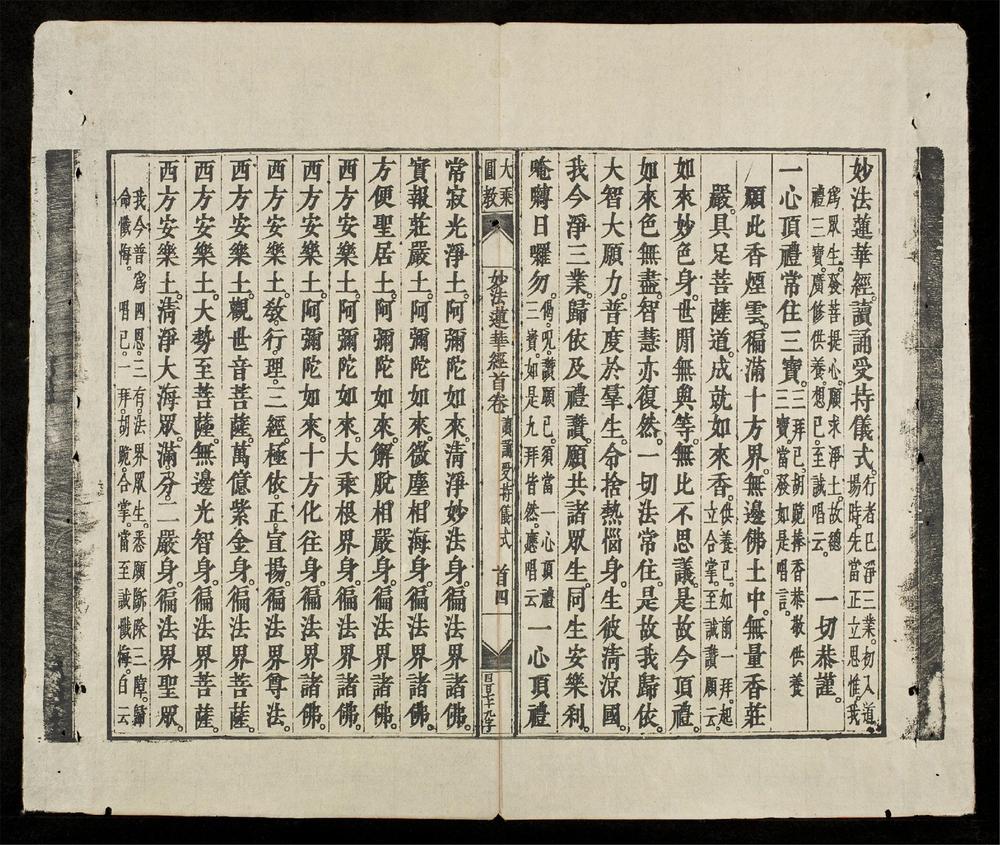 妙法蓮華經。讀誦受持儀式。行者已淨三業。初入道場時。先當正立思惟。我
爲眾生。發菩提心。願求淨土。故總禮三寶。廣修供養。想已。至誠唱云。一切恭謹。
一心頂禮常住三寶。三拜已。胡跪捧香恭敬供養三寶。當發如是唱言。
願此香煙雲。徧滿十方界。無邊佛土中。無量香莊
嚴。具足菩薩道。成就如來香。供養已。如前一拜。起立合掌。至誠讚願云
如來妙色身。世閒無與等。無比不思議。是故今頂禮。
如來色無盡。智慧亦復然。一切法常住。是故我歸依。
大智大願力。普度於羣生。令捨熱惱身。生彼清涼國。
我今淨三業。歸依及禮讚。願共諸眾生。同生安樂剎。
唵嚩日囉勿。偈。咒。讚願已。須當一心頂禮三寶。如是九拜皆然。應唱云一心頂禮
大乘圓教 妙法蓮華經首卷 讀誦受持儀式 首四
常寂光淨土。阿彌陀如來。清淨妙法身。徧法界諸佛。
實報莊嚴土。阿彌陀如來。微塵相海身。徧法界諸佛。
方便聖居土。阿彌陀如來。解脫相嚴身。徧法界諸佛。
西方安樂土。阿彌陀如來。大乘根界身。徧法界諸佛。
西方安樂土。阿彌陀如來。十方化往身。徧法界諸佛。
西方安樂土。教。行。理。三經。極依。正。宣揚。徧法界尊法。
西方安樂土。觀世音菩薩。萬億紫金身。徧法界菩薩。
西方安樂土。大勢至菩薩。無邊光智身。徧法界菩薩。
西方安樂土。清淨大海眾。滿分二嚴身。徧法界聖眾。
我今普爲四恩。三有。法界眾生。悉願斷除三障。歸命懺悔。唱已。一拜。胡跪。合掌。當至誠懺悔。白云